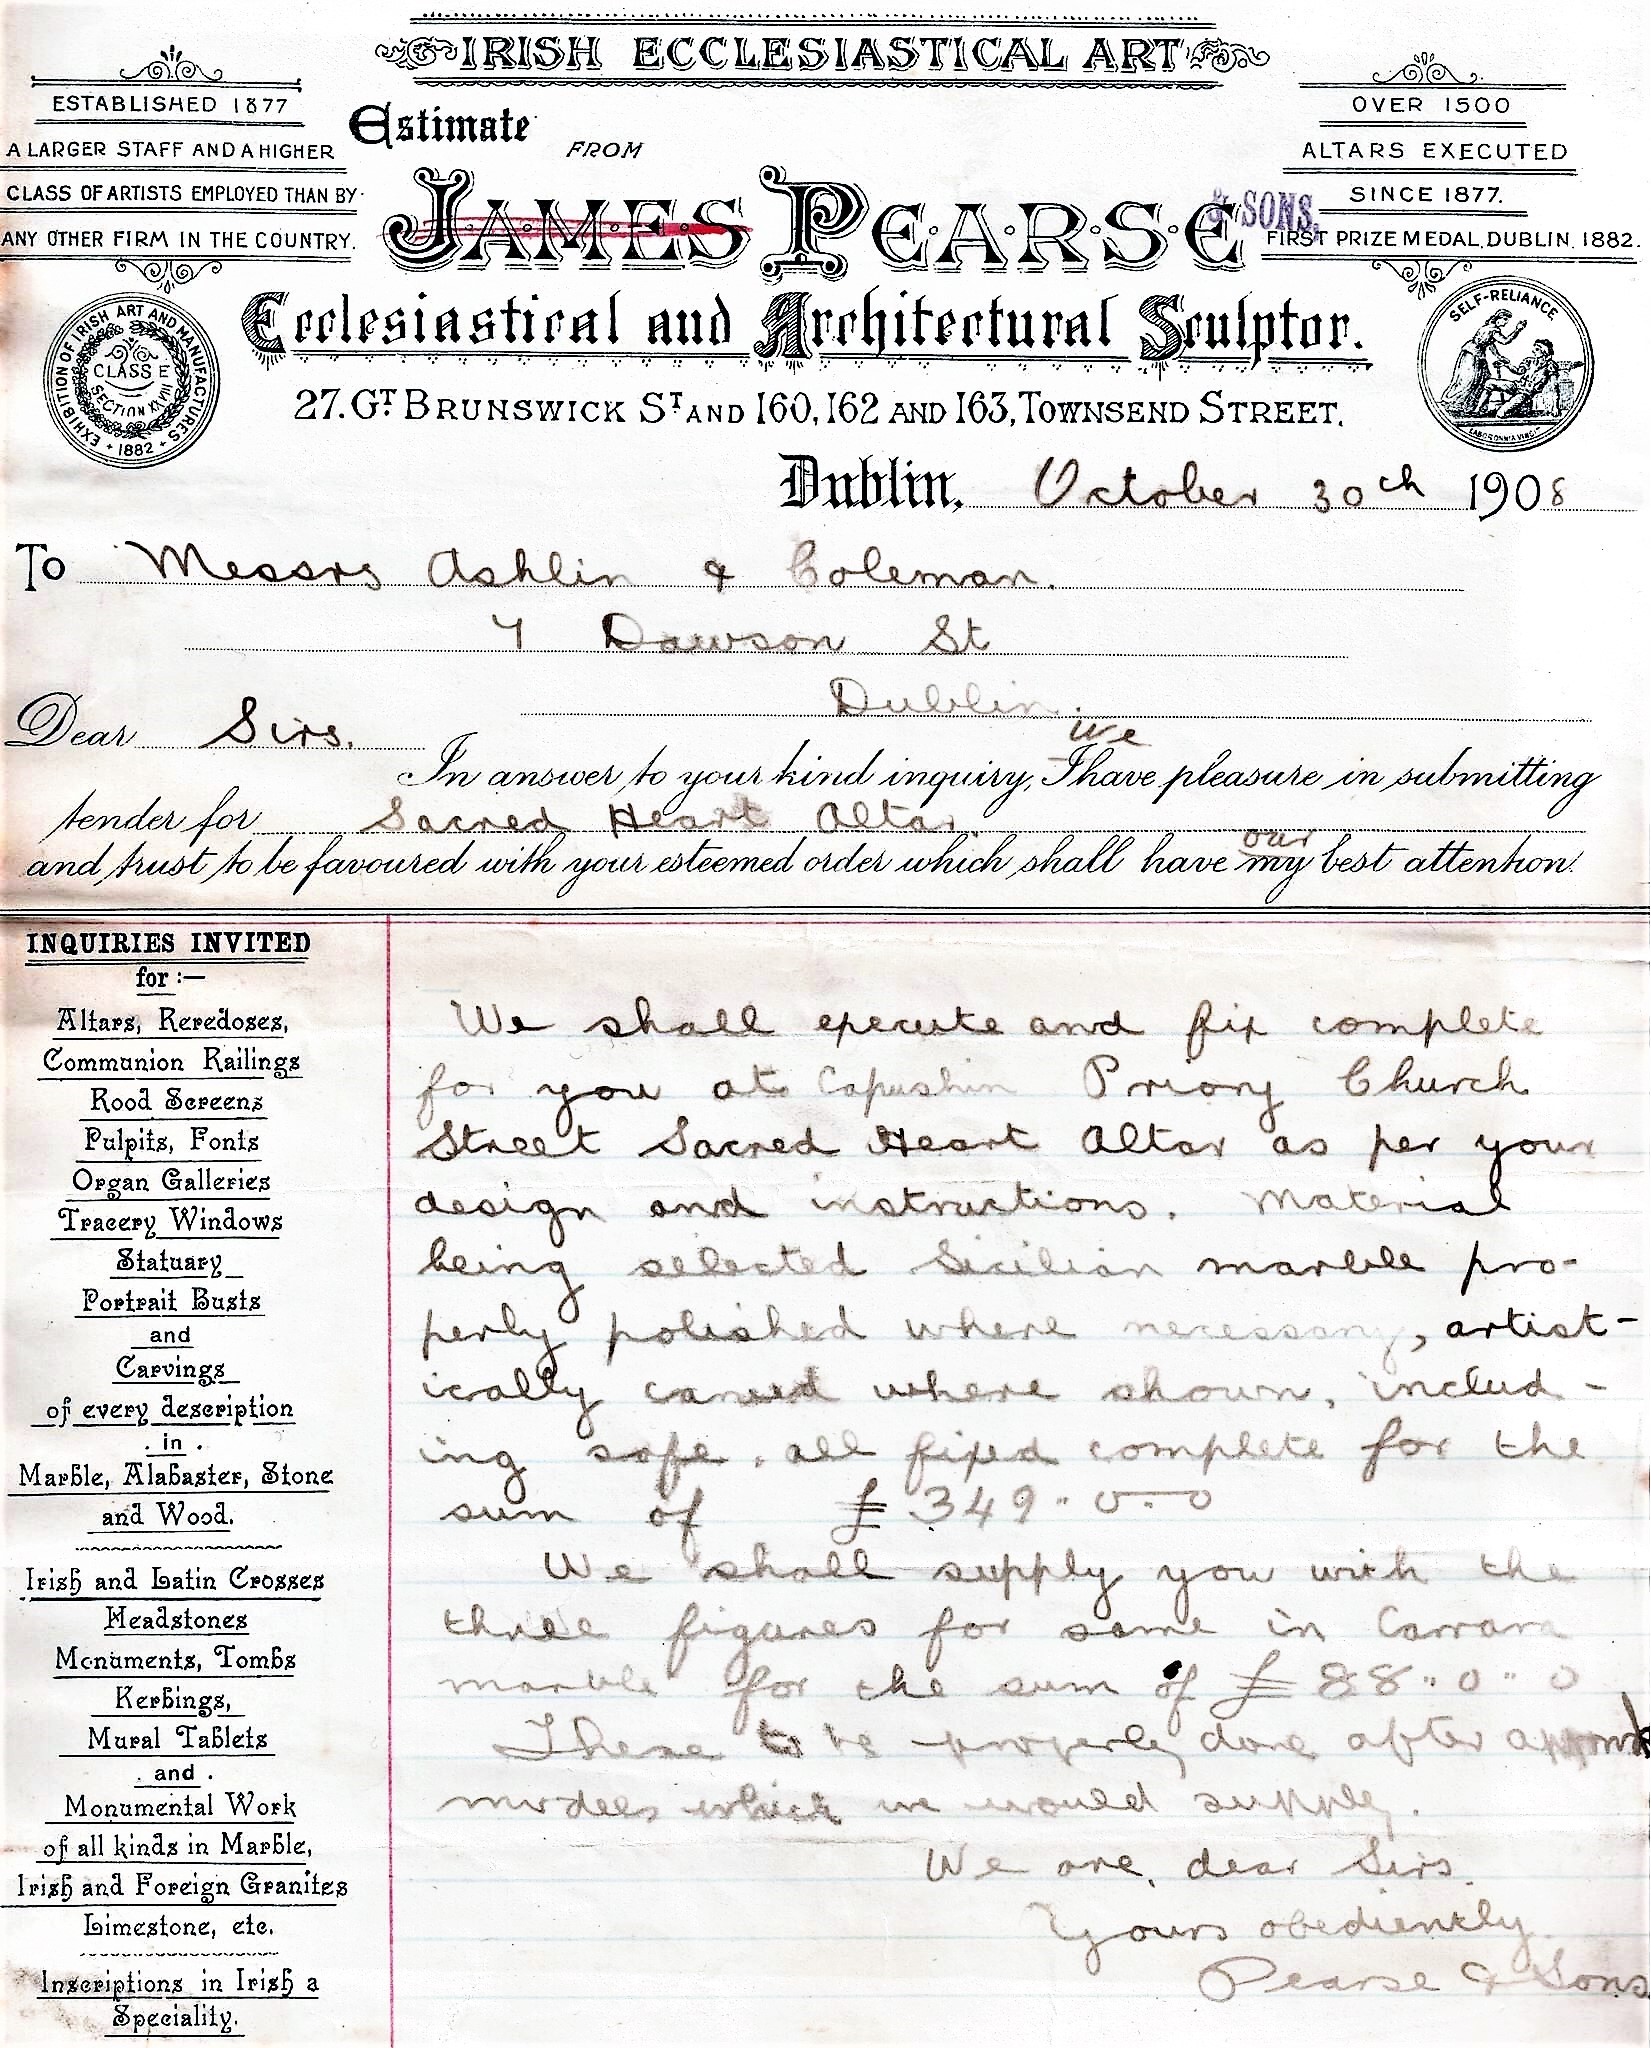 IRISH ECCLESIASTICAL ART
ESTABLISHED 1877
A LARGER STAFF AND A HIGHER
CLASS OF ARTISTS EMPLOYED THAN BY
ANY OTHER FIRM IN THE COUNTRY.
OVER 1500
ALTARS EXECUTED
SINCE 1877.
FIRST PRIZE MEDAL, DUBLIN, 1882.
Estimate FROM
JAMES PEARSE & SONS,
Ecclesiastical and Architectural Sculptor.
EXHIBITION OF IRISH ART AND MANUFACTURES
CLASS E
SECTION XXVIII
1882
SELF-RELIANCE
27. GT BRUNSWICK ST AND 160, 162 AND 163, TOWNSEND STREET.
Dublin, October 30th 1908
To Messrs Ashlin & Coleman.
7 Dawson St
Dublin.
Dear Sirs.
we
In answer to your kind inquiry, I have pleasure in submitting
tender for Sacred Heart Altar
our
and trust to be favoured with your esteemed order which shall have my best attention.
INQUIRIES INVITED
for :—
Altars, Reredoses,
Communion Railings
Rood Screens
Pulpits, Fonts
Organ Galleries
Tracery Windows
Statuary
Portrait Busts
and
Carvings
of every description
. in .
Marble, Alabaster, Stone
and Wood.
Irish and Latin Crosses
Headstones
Monuments, Tombs
Kerbings,
Mural Tablets
. and .
Monumental Work
of all kinds in Marble,
Irish and Foreign Granites
Limestone, etc.
Inscriptions in Irish a
Speciality.
We shall execute and fix complete
for you at Capushin Priory Church
Street Sacred Heart Altar as per your
design and instructions. Material
being selected Sicilian marble pro-
perly polished where necessary, artist-
ically carved where shown, includ-
ing safe, all fixed complete for the
sum of £349"0"0
We shall supply you with the
three figures for same in Carrara
marble for the sum of £88"0"0
These to be properly done after approved
models which we would supply.
We are, dear Sirs.
Yours obediently.
Pearse & Sons